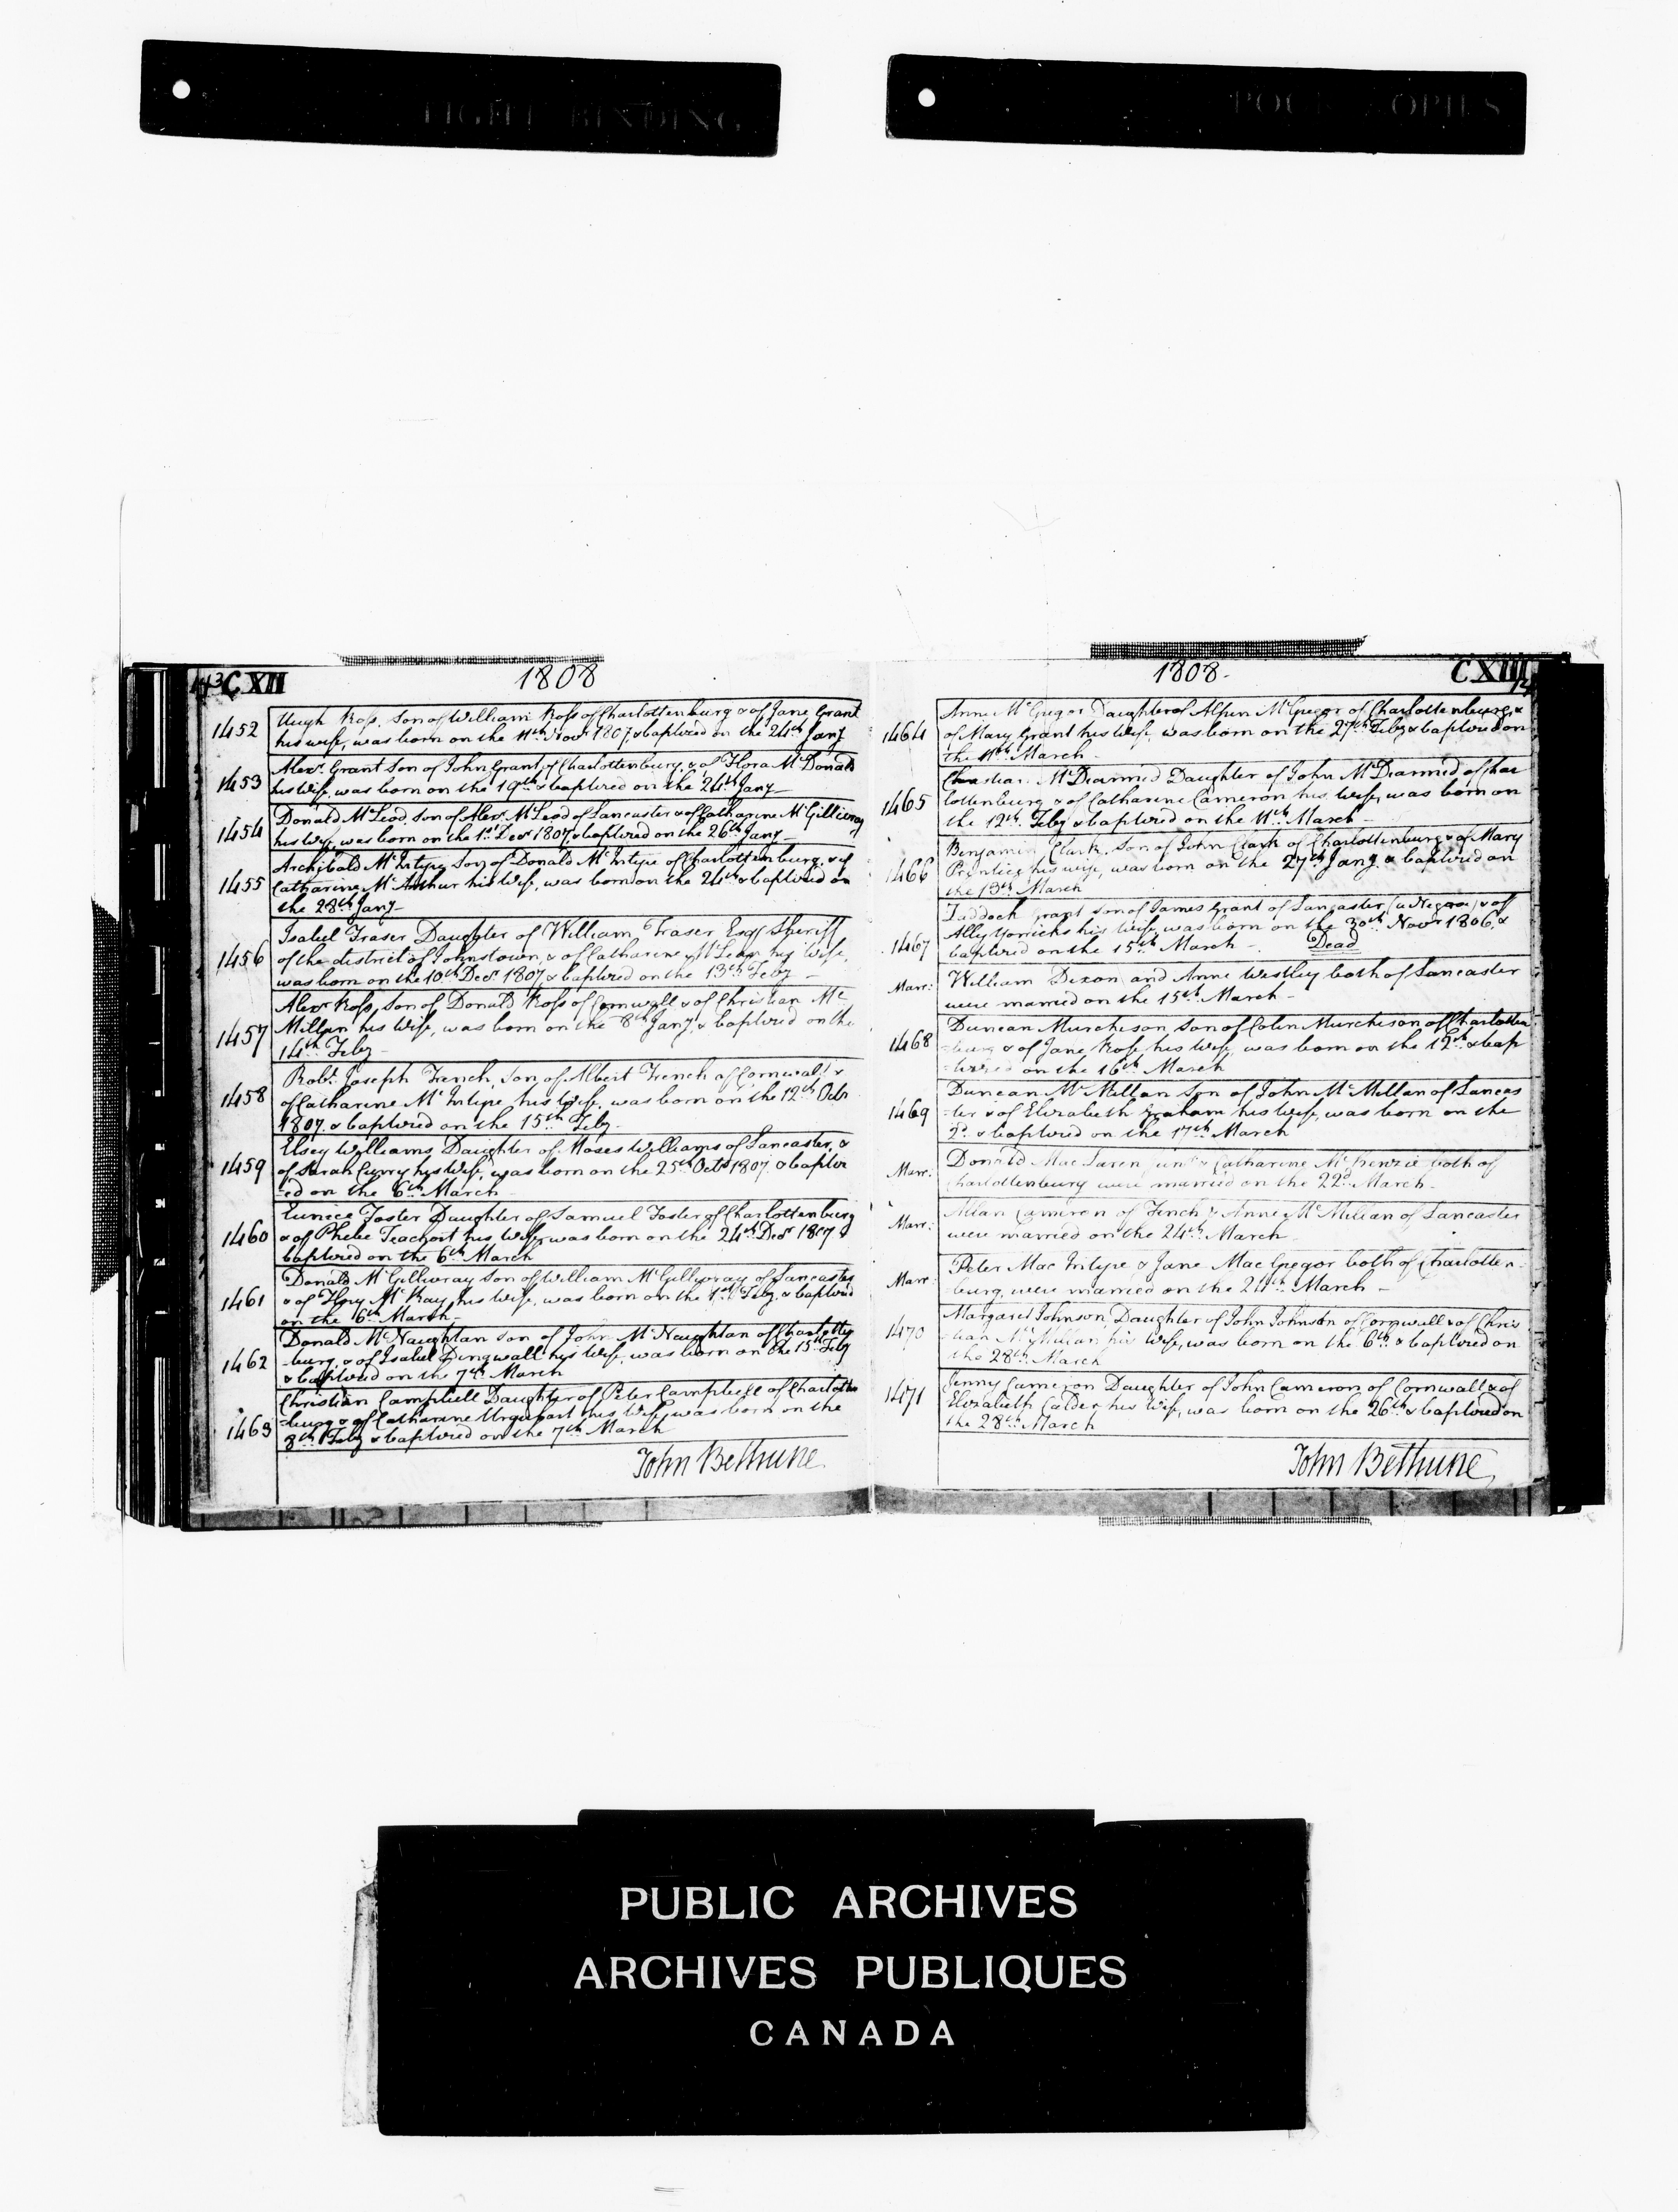 TIGHT BINDING
POOR COPIES
CXII
1808
1452
Hugh Ross, Son of William Ross of Charlottenburg & of Jane Grant
his wife, was born on the 11th Novr 1807, & baptized on the 24th Jany
1453
Alexr Grant Son of John Grant of Charlottenburg, & of Flora McDonald
his wife, was born on the 19th & baptized on the 24th Jany
1454
Donald McLeod, son of Alexr McLeod of Lancaster & of Catharine McGillivray
his wife, was born on the 1st Decr 1807, & baptized on the 26th Jany
1455
Archibald McIntyre Son of Donald McIntyre of Charlottenburg, & of
Catharine McArthur his Wife, was born on the 24th & baptized on
the 28th Jany
1456
Isabel Fraser, Daughter of William Fraser Esqr Sheriff
of the district of Johnstown, & of Catharine McLean his Wife,
was born on the 10th Decr 1807 & baptized on the 13th Feby
1457
Alexr Ross, Son of Donald Ross of Cornwall & of Christian Mc
Millan his Wife, was born on the 8th Jany, & baptized on the
14th Feby
1458
Robt Joseph French, Son of Albert French of Cornwall &
of Catharine McIntyre his Wife, was born on the 12th Octr
1807, & baptized on the 15th Feby
1459
Elsey Williams Daughter of Moses Williams of Lancaster, &
of Sarah Curry his Wife, was born on the 25th Octr 1807 & baptiz
=ed on the 6th March
1460
Eunece Foster Daughter of Samuel Foster of Charlottenburg
& of Phebe his Wife, was born on the 24th Decr 1807 &
baptized on the 6th March
1461
Donald McGillivray Son of William McGillivray of Lancaster
& of Flory McKay, his Wife, was born on the 1st Feby, & baptized
on the 6th March
1462
Donald McNaughtan Son of John McNaughtan of Charlotten
=burg, & of Isabel Dingwall his Wife, was born on the 15th Feby
& baptized on the 7th March
1463
Christian Campbell Daughter of Peter Campbell of Charlotten
=burg & of Catharine Urquhart his Wife, was born on the
8th Feby & baptized on the 7th March
John Bethune
1808.
CXIII
1464
Anne McGregor Daughter of Alpin McGregor of Charlottenburg, &
of Mary Grant his Wife, was born on the 27th Feby & baptized on
the 11th March
1465
Christian McDiarmid Daughter of John McDiarmid of Char
lottenburg & of Catharine Cameron his Wife, was born on
the 12th Feby & baptized on the 11th March
1466
Benjamin Clark, Son of John Clark of Charlottenburg & of Mary
Prentice his wife, was born on the 27th Jany & baptized on
the 13th March
1467
Grant son of James Grant of Lancaster (a Negroe) & of
Ally Yorricks his Wife, was born on the 30th Novr 1806, &
baptized on the 15th March - Dead
Marr:
William Dixon and Anne Westley both of Lancaster
were married on the 15th March
1468
Duncan Murcheson, Son of Colin Murcheson of Charlotten
=burg & of Jane Ross his Wife, was born on the 12th & bap
=tized on the 16th March
1469
Duncan McMillan Son of John McMillan of Lancas
=ter & of Elizabeth Graham his Wife, was born on the
2d & baptized on the 17th March
Marr:
Donald MacLaren junr & Catharine McKenzie both of
Charlottenburg were married on the 22d March
Marr:
Allan Cameron of Finch & Anne McMillan of Lancaster
were married on the 24th March
Marr:
Peter MacIntyre & Jane MacGregor both of Charlotten
burg, were married on the 24th March
1470
Margaret Johnson, Daughter of John Johnson of Cornwall & of Chris
=tian McMillan his Wife, was born on the 6th & baptized on
the 28th March
1471
Jenny Cameron Daughter of John Cameron of Cornwall & of
Elizabeth Calder his Wife, was born on the 26th & baptized on
the 28th March
John Bethune
PUBLIC ARCHIVES
ARCHIVES PUBLIQUES
CANADA